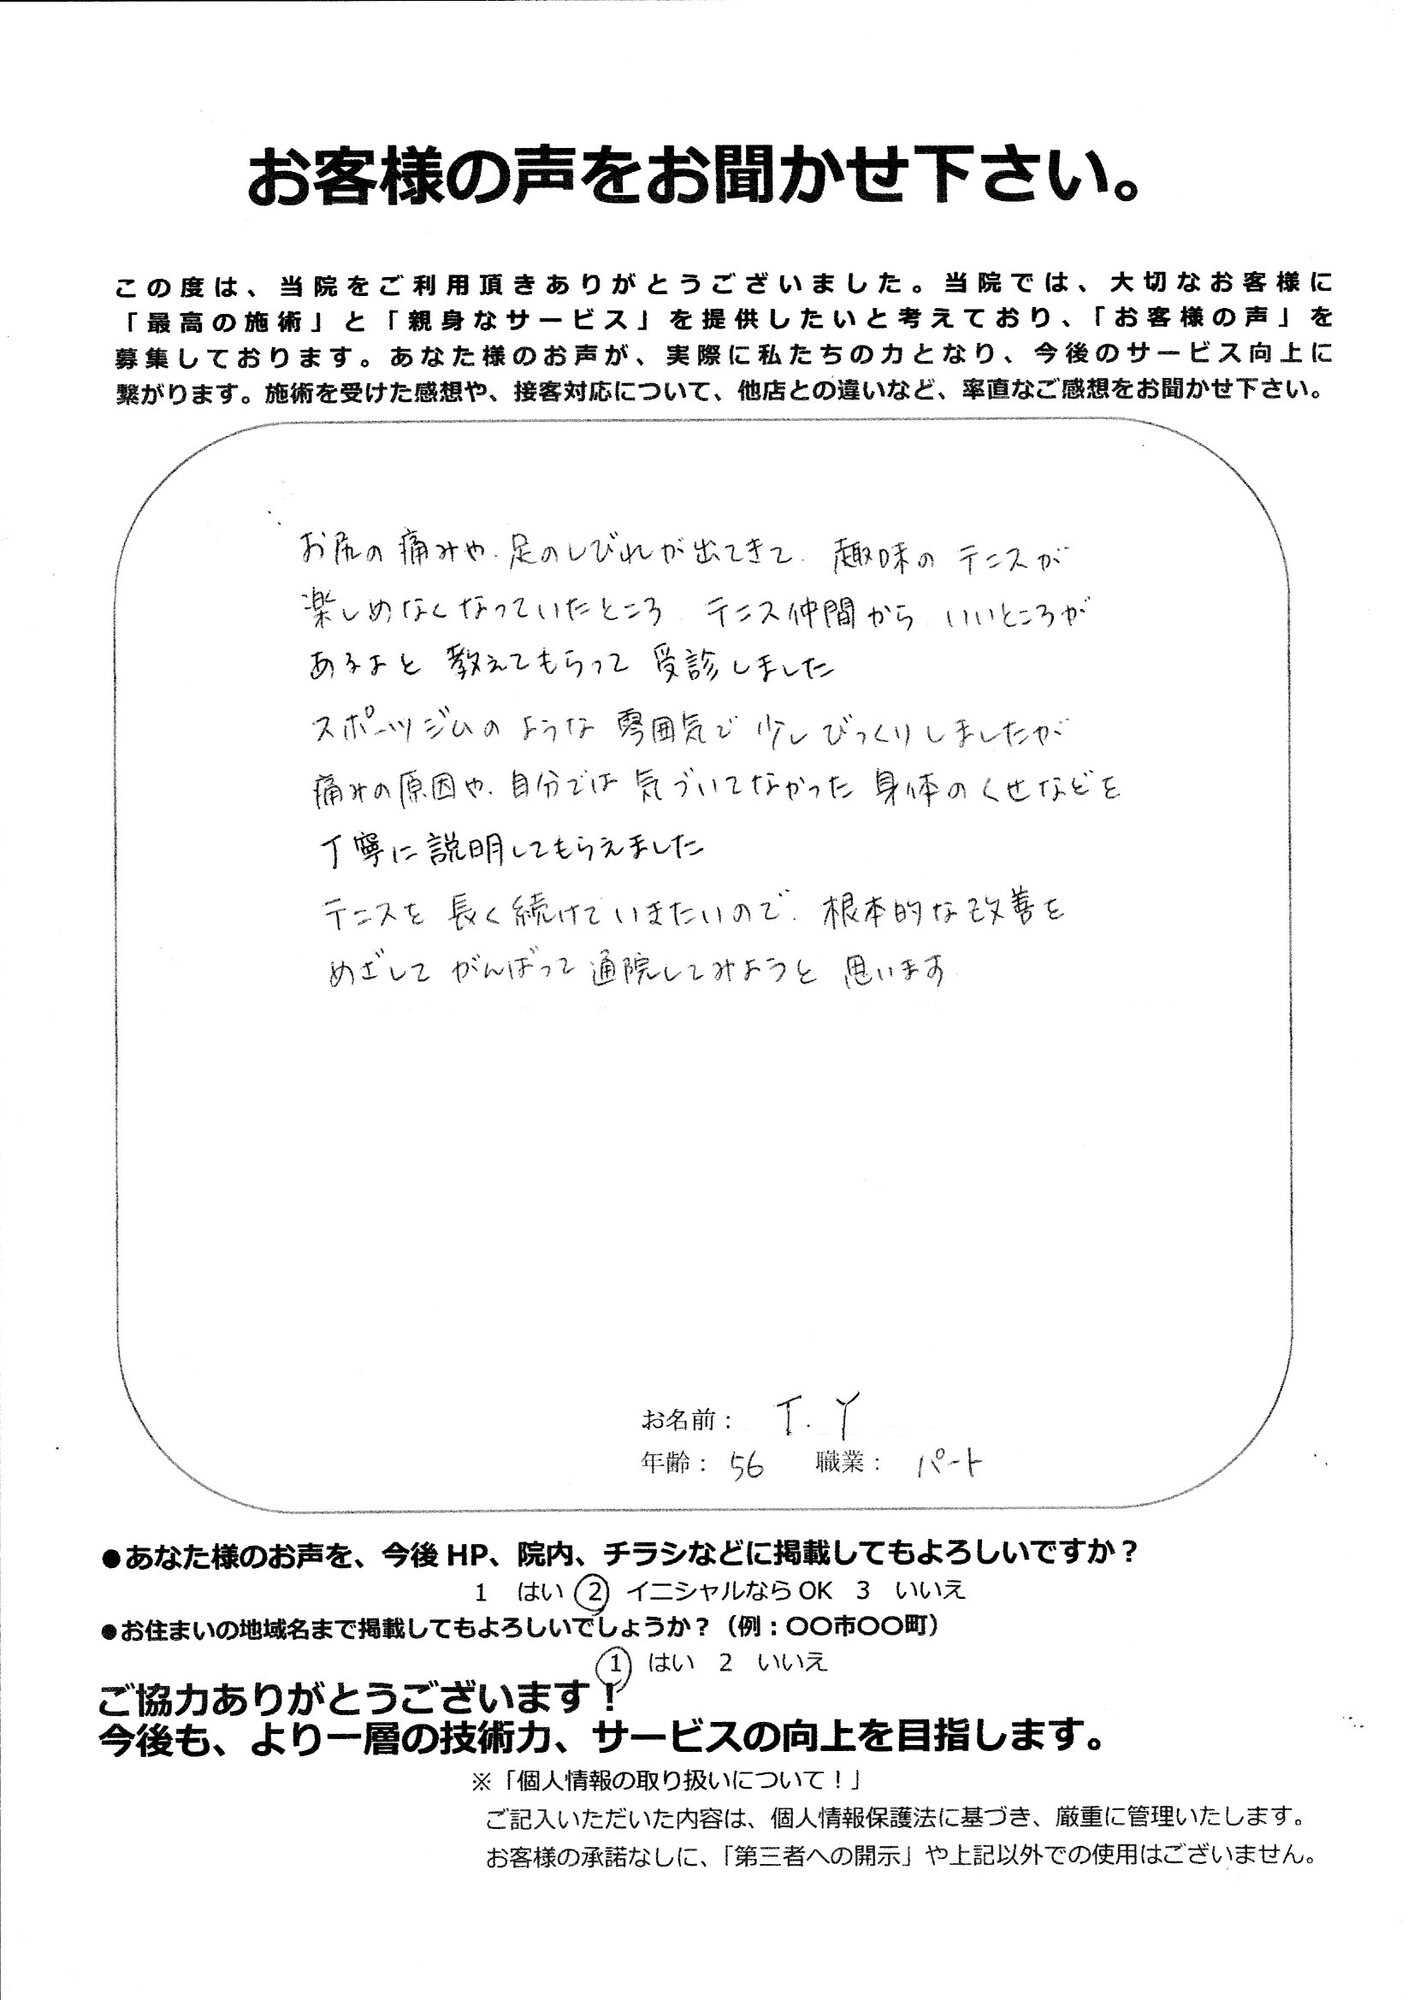 お客様の声をお聞かせ下さい。
この度は、当院をご利用頂きありがとうございました。当院では、大切なお客様に
「最高の施術」と「親身なサービス」を提供したいと考えており、「お客様の声」を
募集しております。あなた様のお声が、実際に私たちの力となり、今後のサービス向上に
繋がります。施術を受けた感想や、接客対応について、他店との違いなど、率直なご感想をお聞かせ下さい。
お尻の痛みや、足のしびれが出てきて、趣味のテニスが
楽しめなくなっていたところ テニス仲間から いいところが
あるよと 教えてもらって 受診しました
スポーツジムのような 雰囲気で 少しびっくりしましたが
痛みの原因や、自分では 気づいてなかった 身体のくせなどを
丁寧に説明してもらえました
テニスを 長く続けていきたいので、根本的な改善を
めざして がんばって 通院してみようと 思います
お名前： T.Y
年齢： 56 職業： パート
●あなた様のお声を、今後 HP、院内、チラシなどに掲載してもよろしいですか？
1 はい 2 イニシャルなら OK 3 いいえ
●お住まいの地域名まで掲載してもよろしいでしょうか？（例：〇〇市〇〇町）
1 はい 2 いいえ
ご協力ありがとうございます！
今後も、より一層の技術力、サービスの向上を目指します。
※「個人情報の取り扱いについて！」
ご記入いただいた内容は、個人情報保護法に基づき、厳重に管理いたします。
お客様の承諾なしに、「第三者への開示」や上記以外での使用はございません。